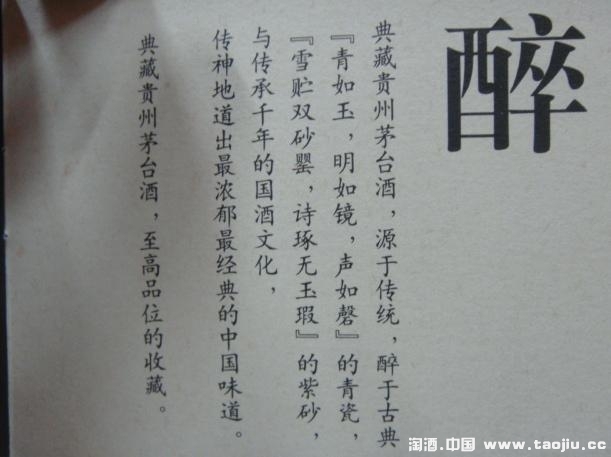 醉
典藏贵州茅台酒，源于传统，醉于古典
『青如玉，明如镜，声如磬』的青瓷，
『雪贮双砂罂，诗琢无玉瑕』的紫砂，
与传承千年的国酒文化，
传神地道出最浓郁最经典的中国味道。
典藏贵州茅台酒，至高品位的收藏。
淘酒.中国 www.taojiu.cc